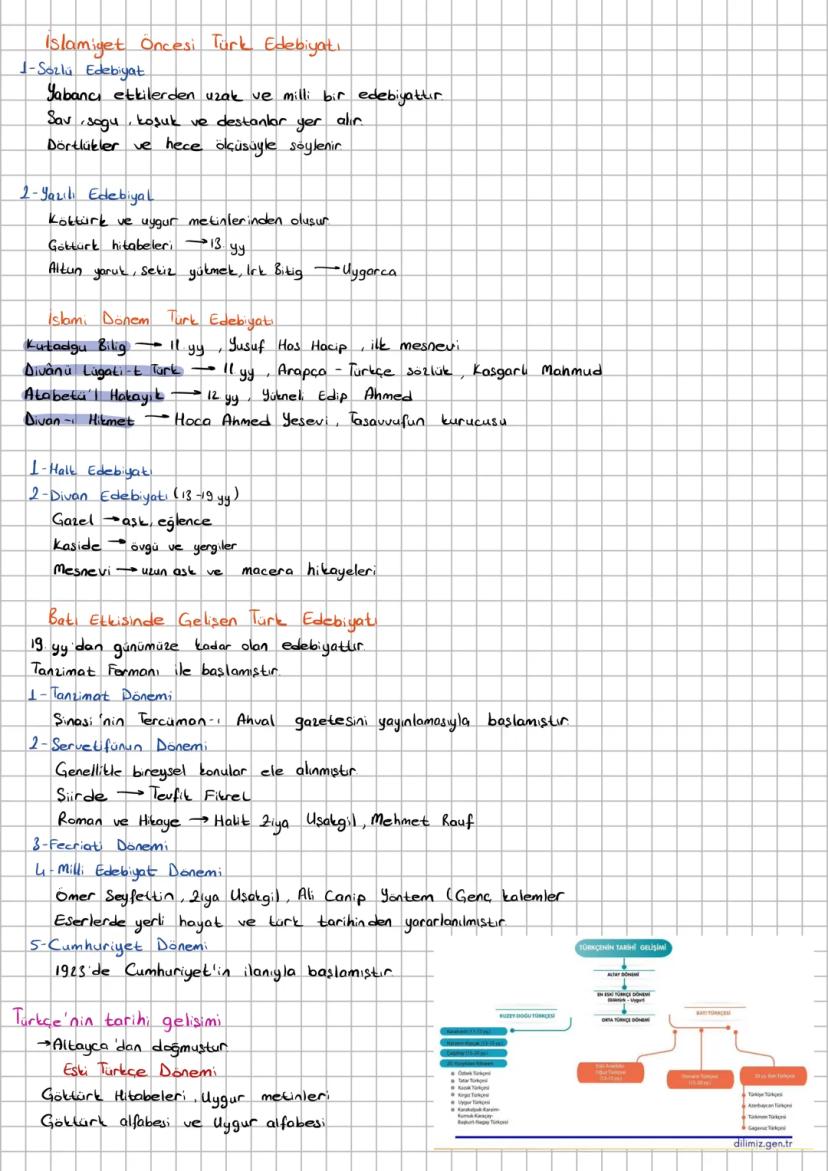 İslamiyet Öncesi Türk Edebiyatı
1-Sözlü Edebiyat
Yabancı etkilerden uzak ve milli bir edebiyattır.
Sav, sagu, koşuk ve destanlar yer alır.
Dörtlükler ve hece ölçüsüyle söylenir.
2-Yazılı Edebiyat
Köktürk ve uygur metinlerinden oluşur.
Göktürk hitabeleri → 13. yy
Altun yaruk, sekiz yükmek, Irk Bitig → Uygarca
İslami Dönem Türk Edebiyatı
Kutadgu Bilig → 11. yy, Yusuf Has Hacip, ilk mesnevi
Divânü Lügati-t Türk → 11. yy, Arapça - Türkçe sözlük, Kaşgarlı Mahmud
Atabetü'l Hakayık → 12. yy, Yükneli Edip Ahmed
Divan-ı Hikmet → Hoca Ahmed Yesevi, Tasavvufun kurucusu
1-Halk Edebiyatı
2-Divan Edebiyatı (13-19 yy)
Gazel → aşk, eğlence
Kaside → övgü ve yergiler
Mesnevi → uzun aşk ve macera hikayeleri
Batı Etkisinde Gelişen Türk Edebiyatı
19. yy'dan günümüze kadar olan edebiyattır.
Tanzimat Fermanı ile başlamıştır.
1-Tanzimat Dönemi
Şinasi'nin Tercüman-ı Ahval gazetesini yayınlamasıyla başlamıştır.
2-Servetifünun Dönemi
Genellikle bireysel konular ele alınmıştır.
Şiirde → Tevfik Fikret
Roman ve Hikaye → Halit Ziya Uşakgil, Mehmet Rauf
3-Fecriati Dönemi
4-Milli Edebiyat Dönemi
Ömer Seyfettin, Ziya Uşakgil, Ali Canip Yöntem (Genç kalemler
Eserlerde yerli hayat ve türk tarihinden yararlanılmıştır.
5-Cumhuriyet Dönemi
1923'de Cumhuriyet'in ilanıyla başlamıştır.
Türkçe'nin tarihi gelişimi
→Altayca'dan doğmuştur
Eski Türkçe Dönemi
Göktürk Hitabeleri, Uygur metinleri
Göktürk alfabesi ve Uygur alfabesi
TÜRKÇENİN TARİHÎ GELİŞİMİ
ALTAY DÖNEMİ
EN ESKİ TÜRKÇE DÖNEMİ
(Göktürk - Uygur)
ORTA TÜRKÇE DÖNEMİ
KUZEY-DOĞU TÜRKÇESİ
Özbek Türkçesi
Tatar Türkçesi
Kazak Türkçesi
Kırgız Türkçesi
Uygur Türkçesi
Karakalpak-Karaim-
Kumuk-Karaçay-
Başkurt-Nogay Türkçesi
BATI TÜRKÇESİ
Eski Anadolu
Oğuz Türkçesi
(13-15 yy.)
Osmanlı Türkçesi
(15-20 yy.)
20.yy. Batı Türkçesi
Türkiye Türkçesi
Azerbaycan Türkçesi
Türkmen Türkçesi
Gagavuz Türkçesi
dilimiz.gen.tr